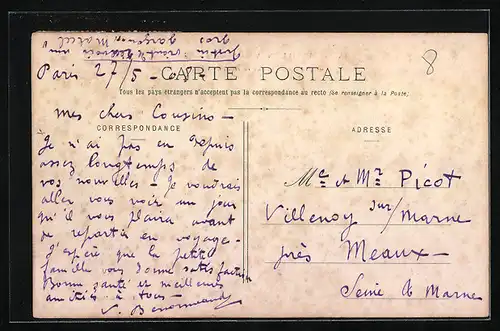 gros garçonnet Marcel
Paris 27/5-08
CARTE POSTALE
8
Tous les pays étrangers n'acceptent pas la correspondance au recto (Se renseigner à la Poste)
mes chers Cousins -
CORRESPONDANCE
Je n'ai pas eu depuis
assez longtemps de
vos nouvelles - Je voudrais
aller vous voir un jour
qu'il vous plaira avant
de repartir en voyage -
J'espère que la petite
famille vous donne satisfaction
Bonne santé et meilleures
amitiés à tous -
ADRESSE
Me et Mr Picot
Villenoy sur/Marne
près Meaux -
Seine & Marne